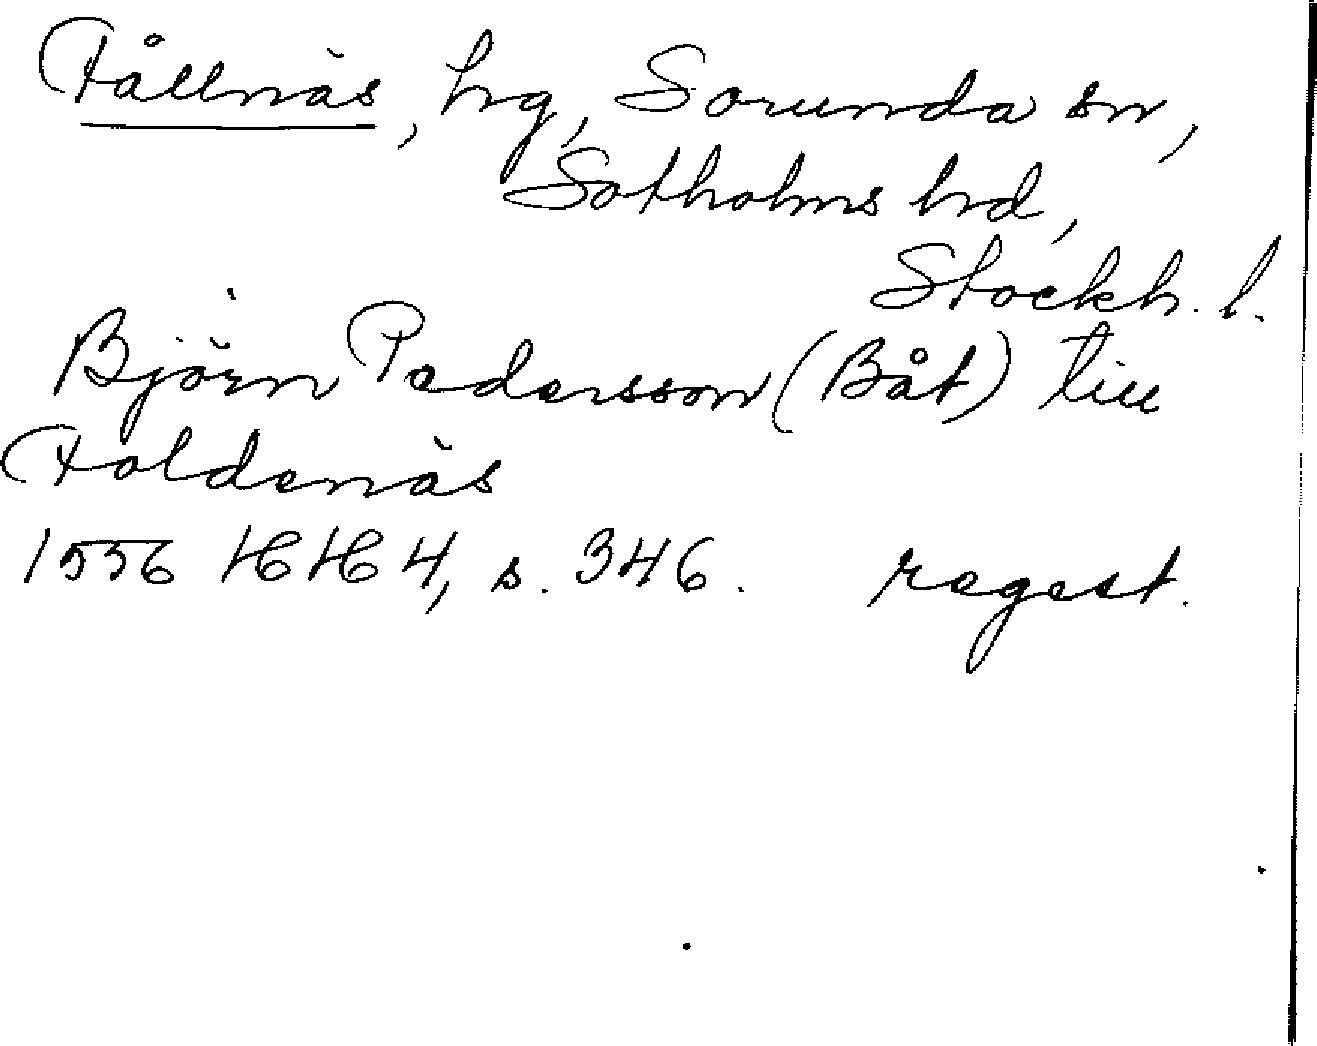 Fållnäs, hrg, Sorunda sn,
Sotholms hrd,
Stockh. l.
Björn Pedersson (Båt) till
Foldenäs
1556 HH 4, s. 346. regest.